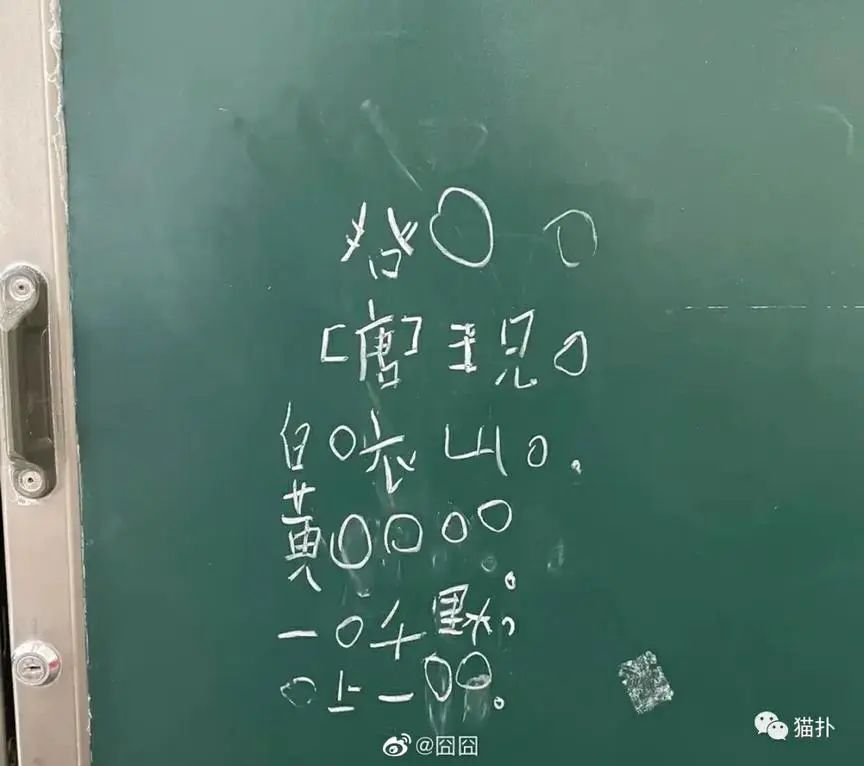 登〇〇
[唐]王见〇
白〇依山〇。
黄〇〇〇〇。
一〇千里,
〇上一〇〇。
@囧囧
猫扑